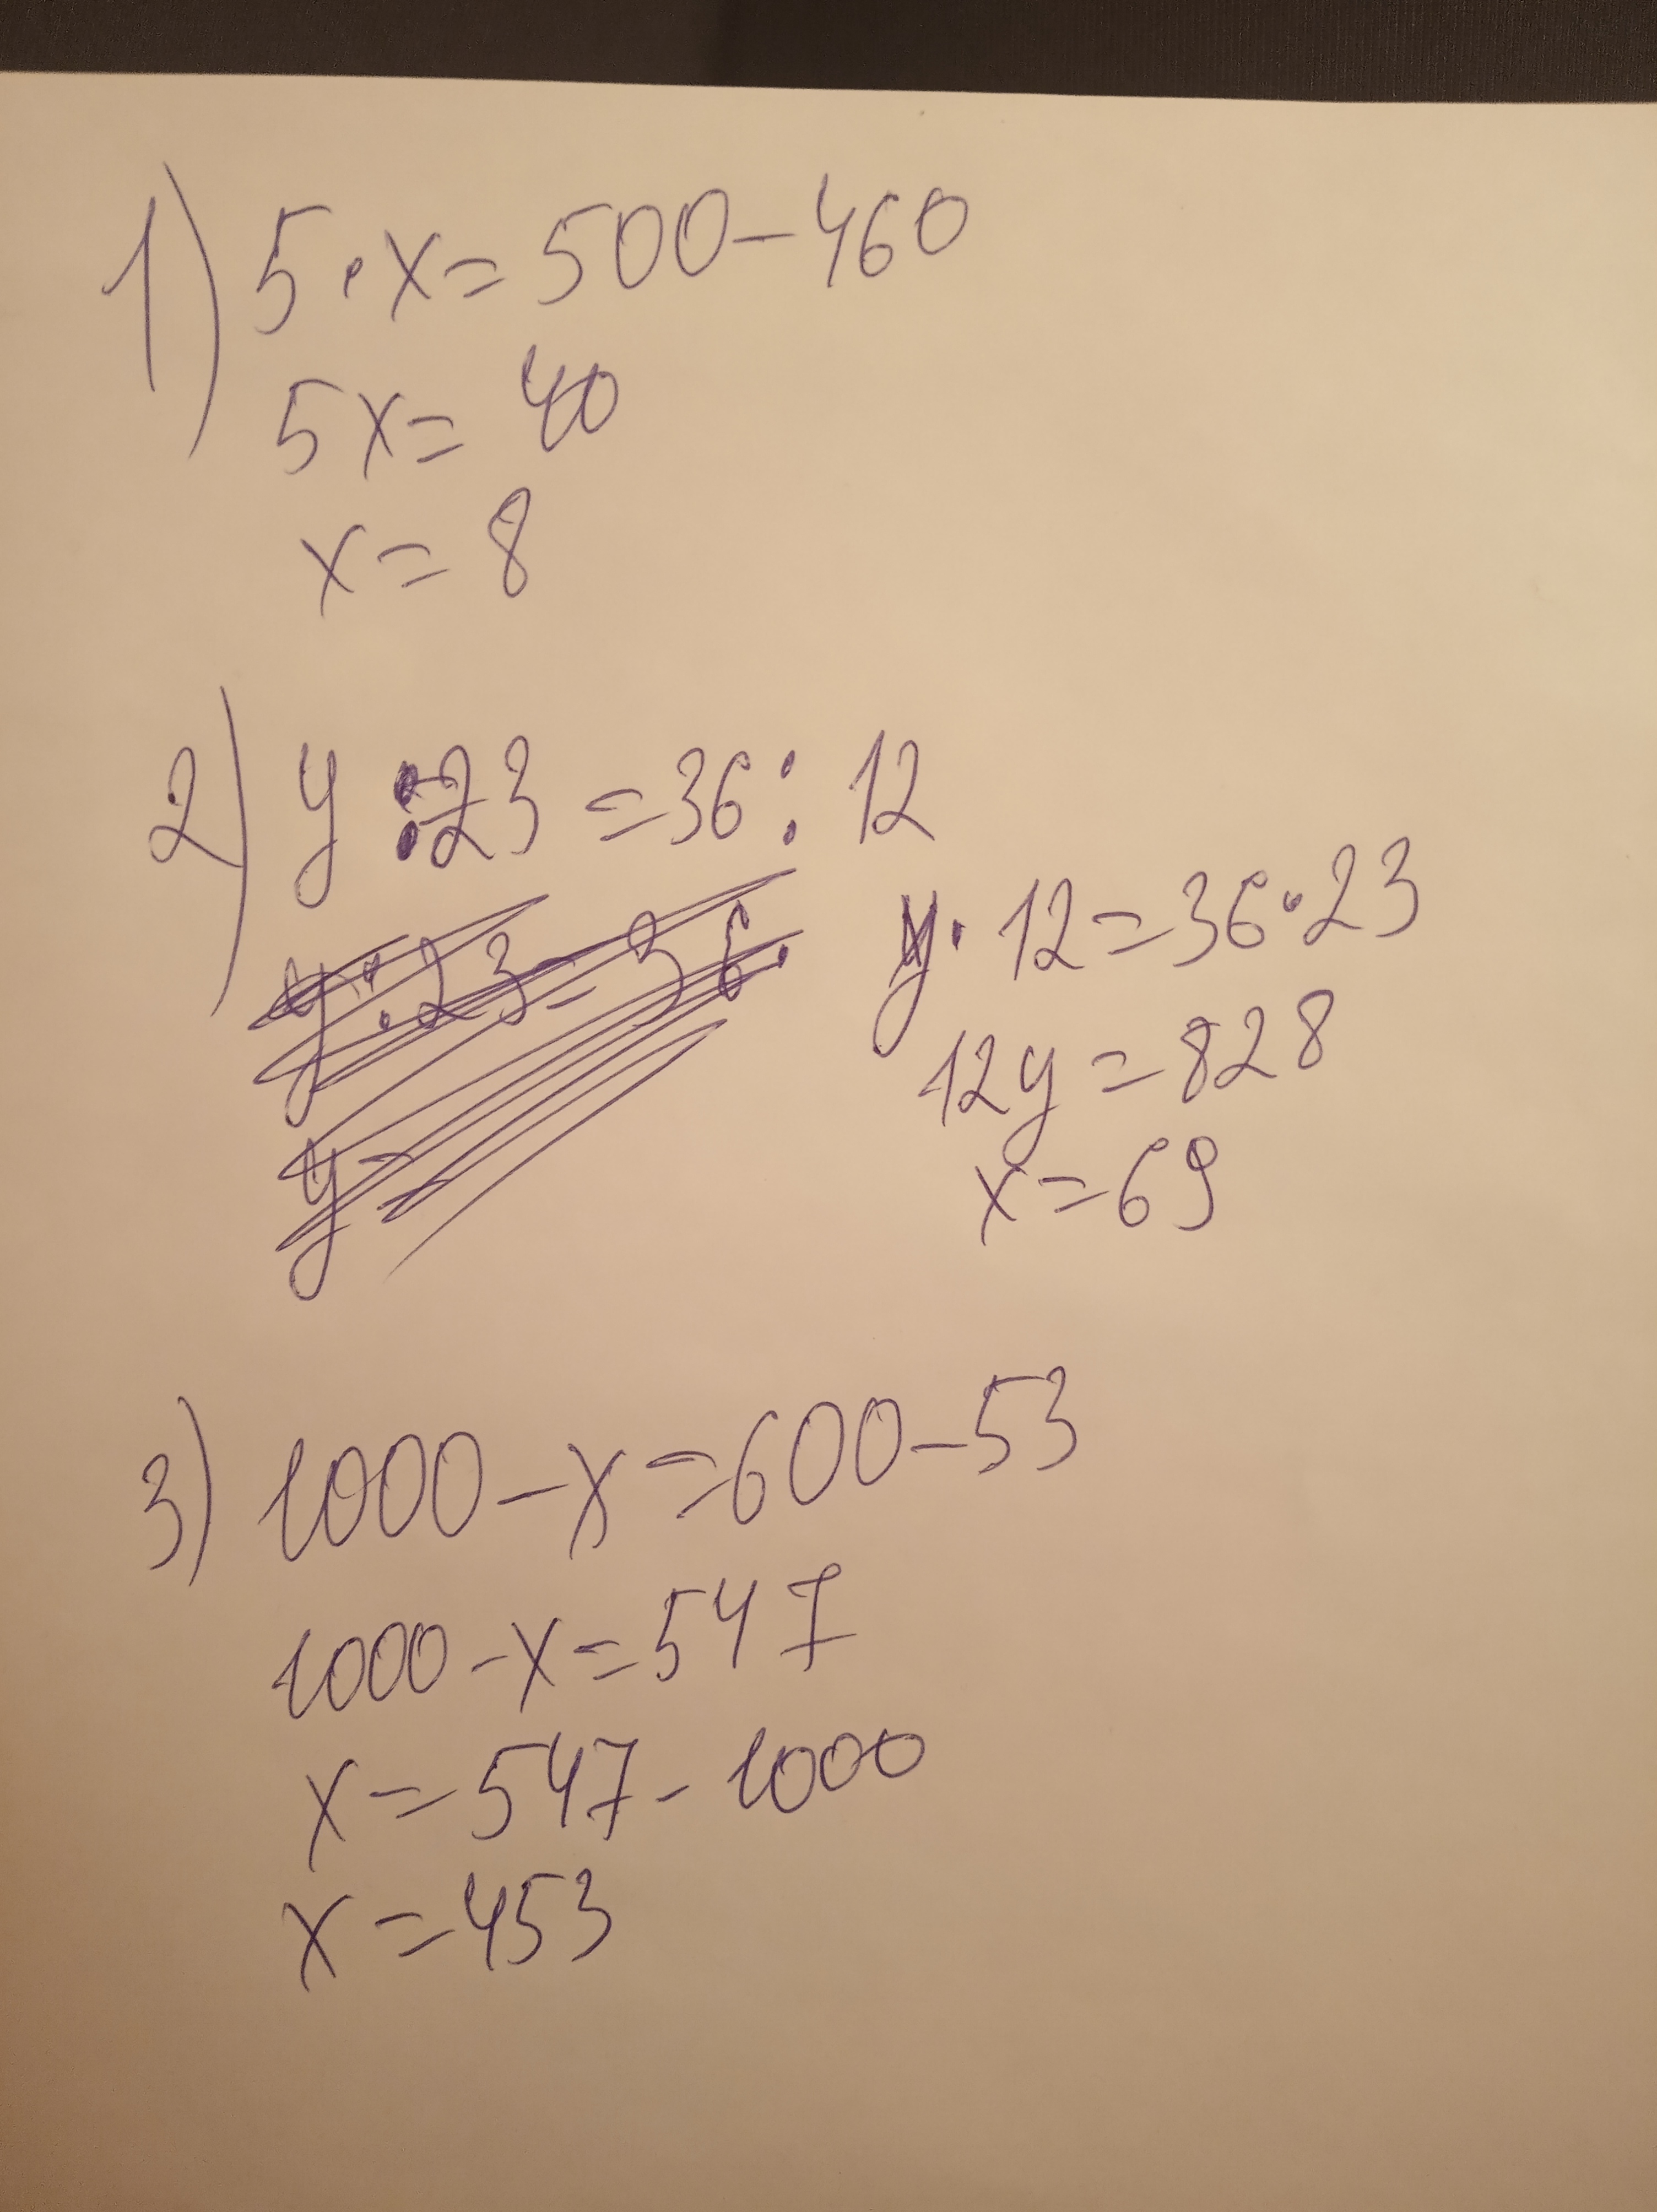 1) 5·x=500-460
5x=40
x=8
2) y:23=36:12
y:23=36·
y=
y·12=36·23
12y=828
x=69
3) 1000-x=600-53
1000-x=547
x=547-1000
x=453